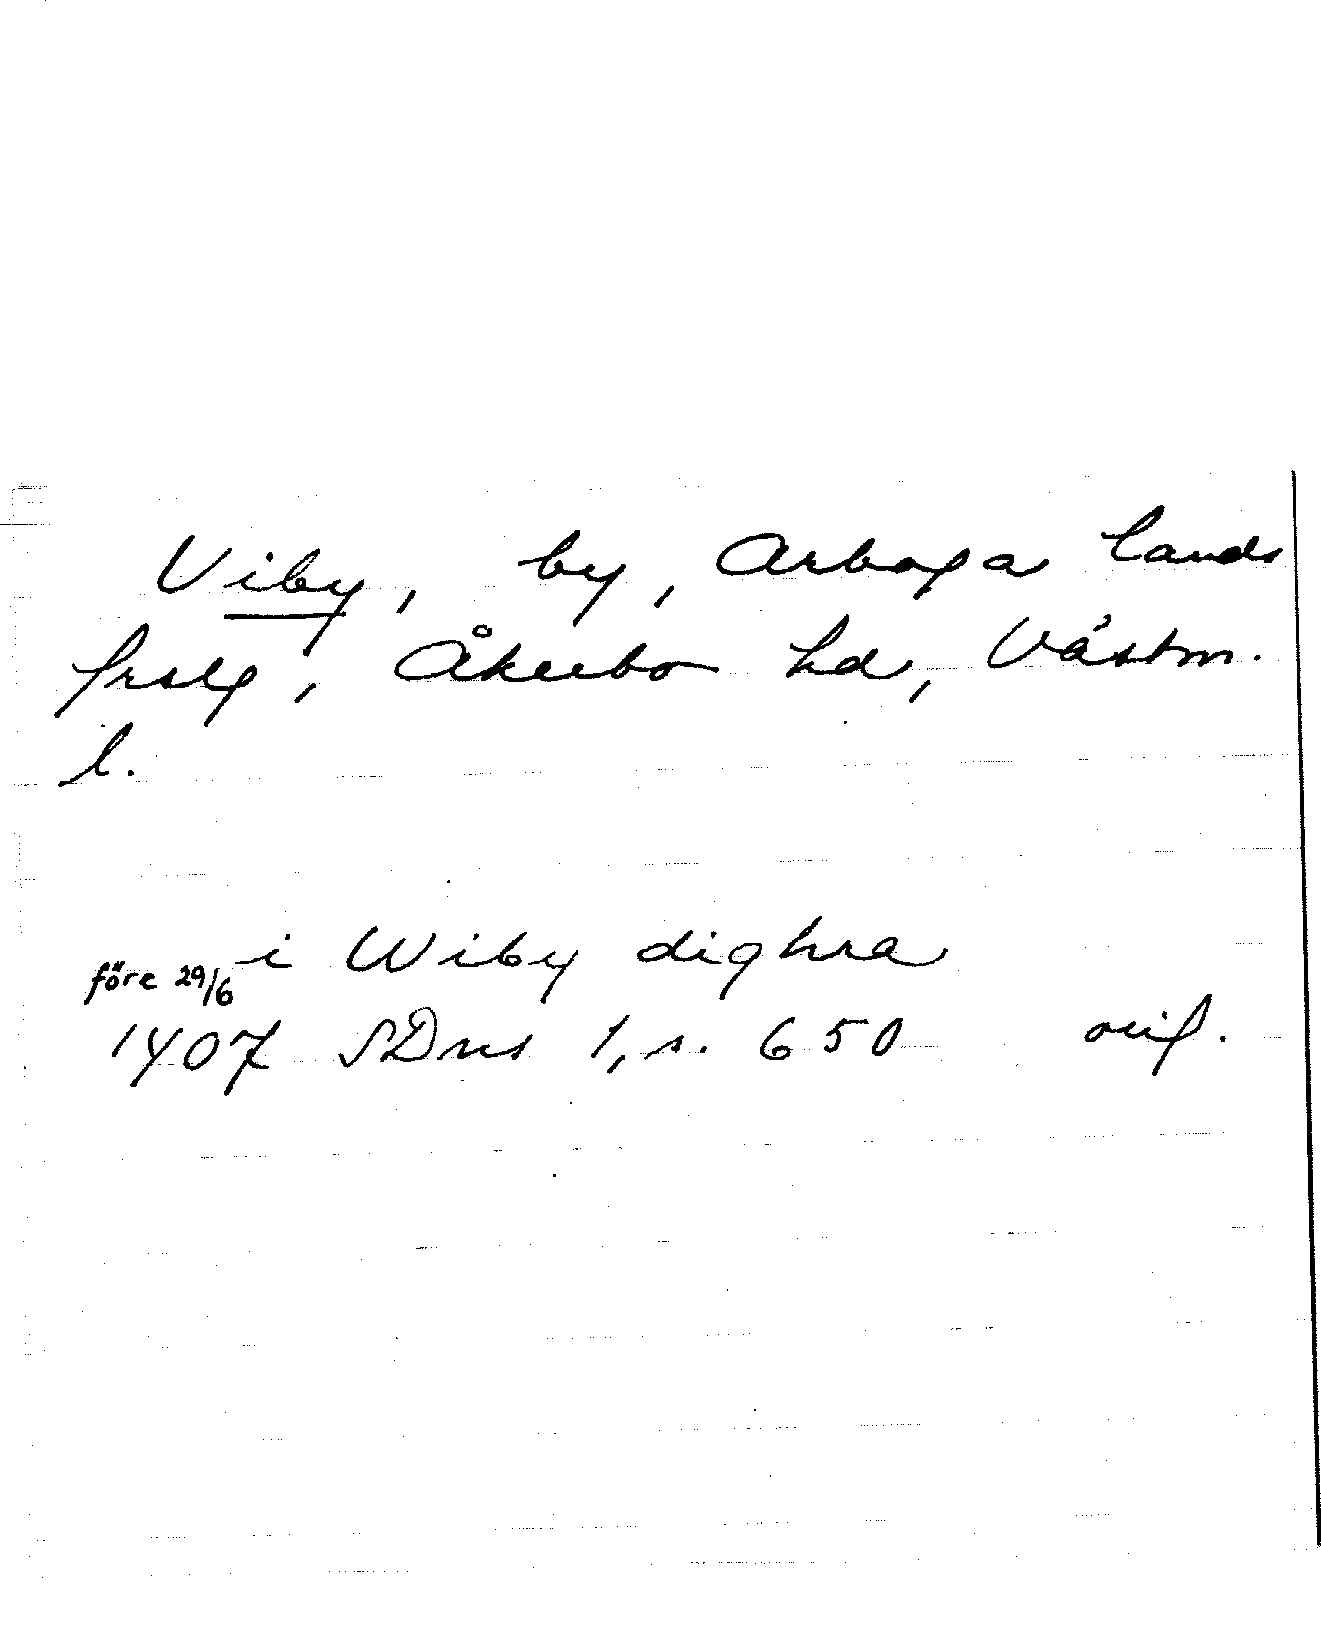 Viby, by, Arboga lands
frslg, Åkerbo hd, Västm.
l.
i Wiby dighra
före 29/6
1407 SDns 1, s. 650 orig.